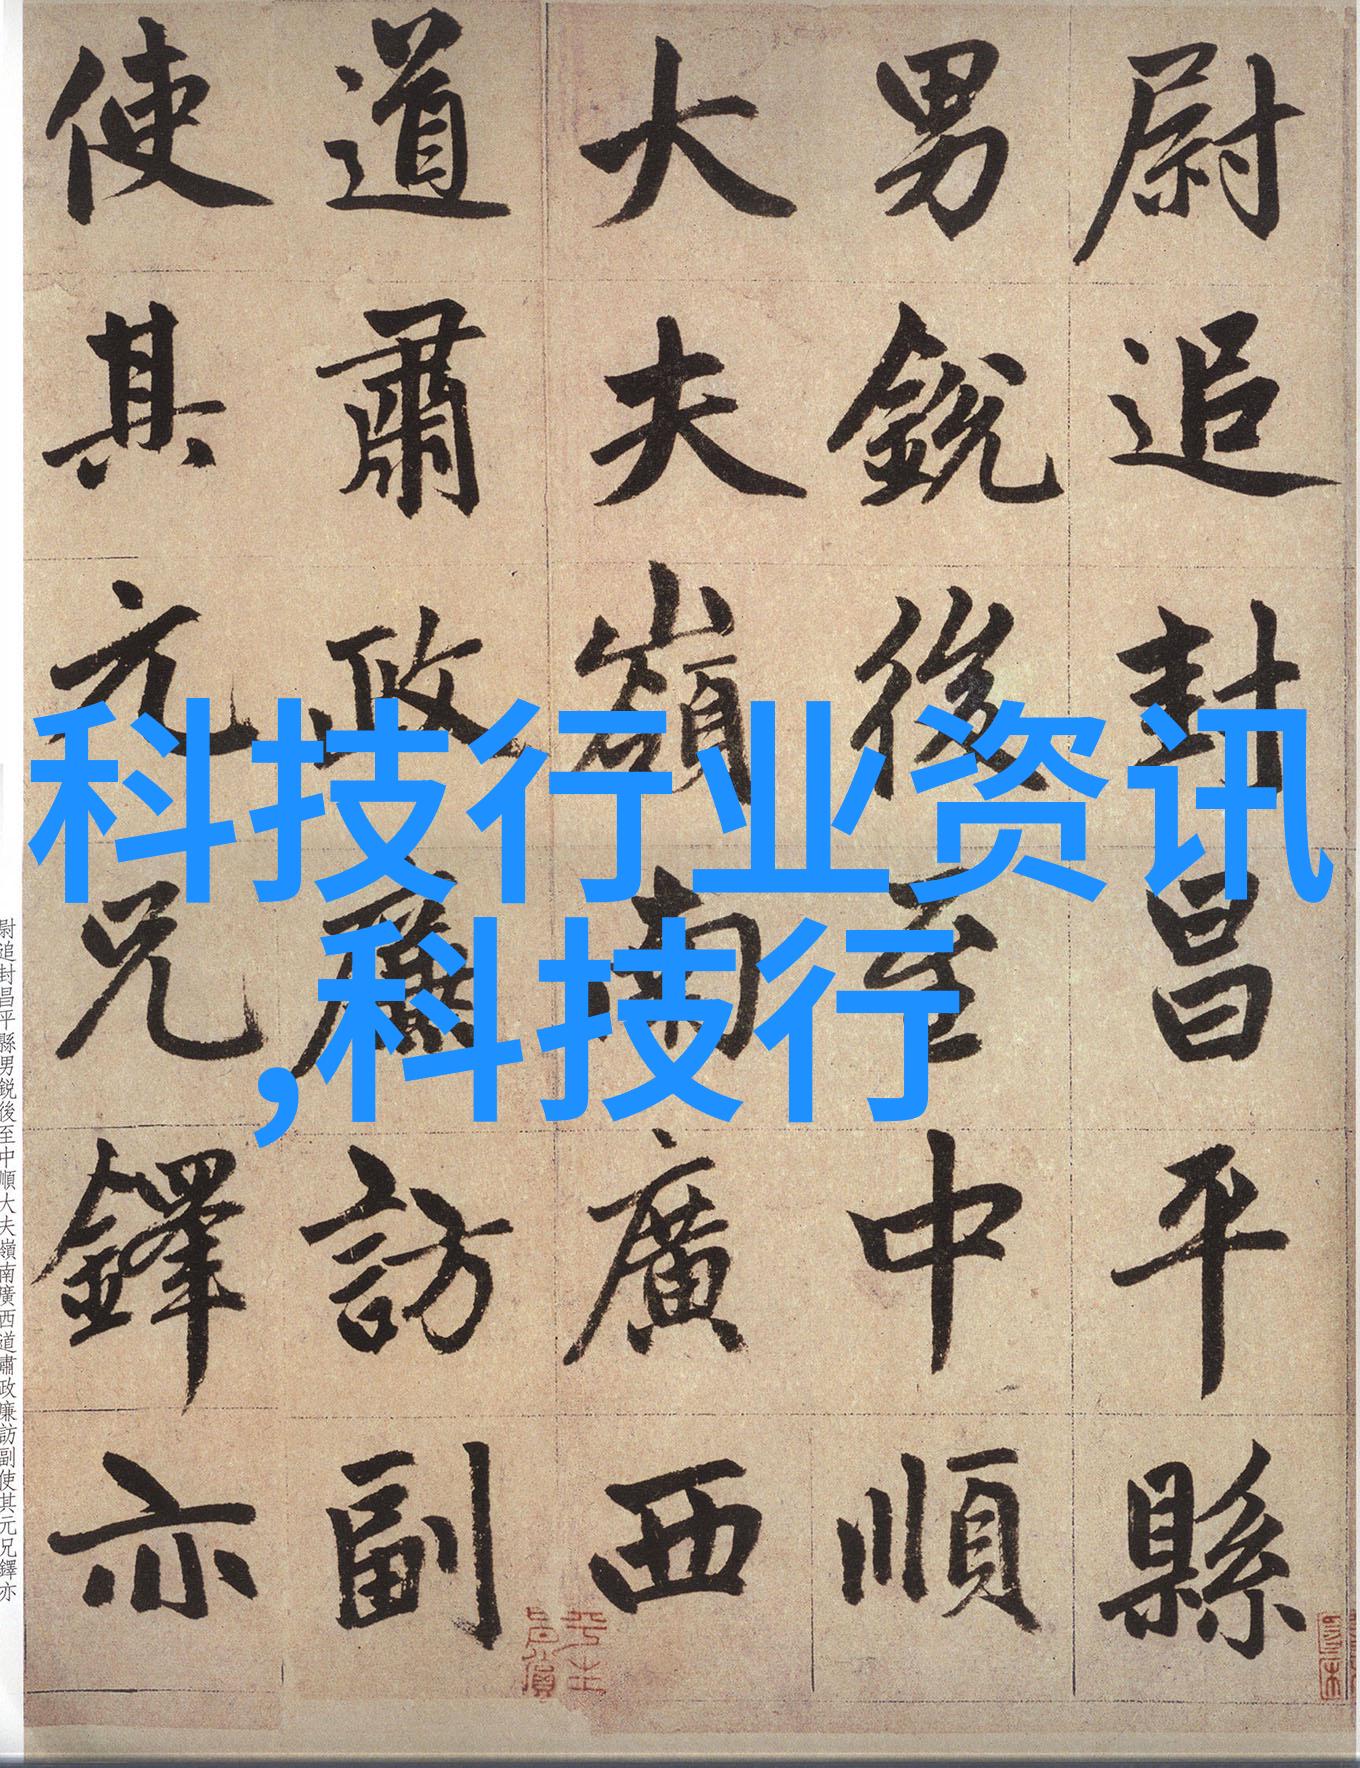 尉追封昌平縣
男銳後至中順
大夫嶺南廣西
道肅政廉訪副
使其元兄鐸亦
科技行业资讯
,科技行
尉追封昌平縣男鋭後至中順大夫嶺南廣西道肅政廉訪副使其元兄鐸亦